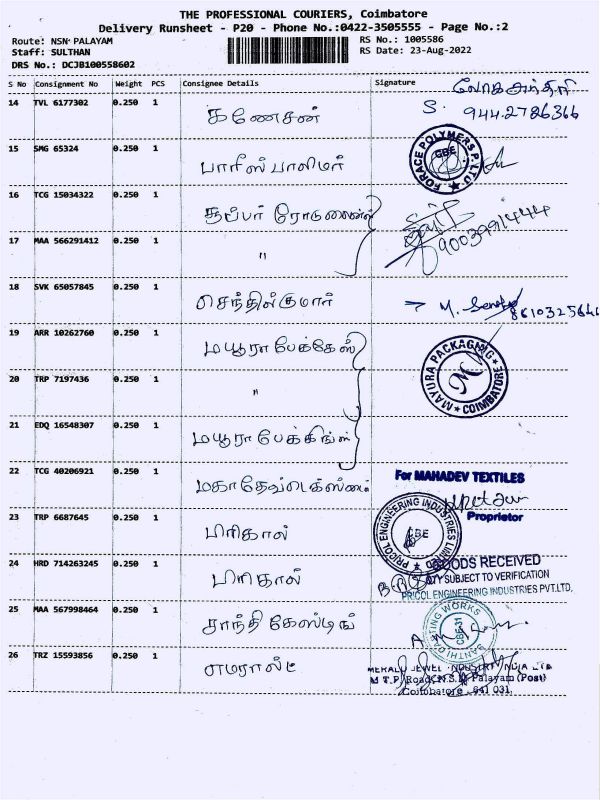 THE PROFESSIONAL COURIERS, Coimbatore
Delivery Runsheet - P20 - Phone No.:0422-3505555 - Page No.:2
Route: NSN PALAYAM RS No.: 1005586
Staff: SULTHAN RS Date: 23-Aug-2022
DRS No.: DCJB100558602
S No Consignment No Weight PCS Consignee Details Signature
14 TVL 6177302 0.250 1 கணேசன் S. 944 2786366
15 SMG 65324 0.250 1 பாரிஸ் பாலிமர் FORACE POLYMERS P. LTD CBE
16 TCG 15034322 0.250 1 சூப்பர்
17 MAA 566291412 0.250 1 " 9003991444
18 SVK 65057845 0.250 1 செந்தில்குமார் → M. 8610325646
19 ARR 10262760 0.250 1 மயூரா பேக்கேஸ்
20 TRP 7197436 0.250 1 " MAYURA PACKAGING COIMBATORE
21 EDQ 16548307 0.250 1 மயூரா பேக்கிங்ஸ்
22 TCG 40206921 0.250 1 மகாதேவ் டெக்ஸ்டைல் For MAHADEV TEXTILES
Proprietor
23 TRP 6687645 0.250 1 பிரிகால் PRICOL ENGINEERING INDUSTRIES LIMITED CBE
24 HRD 714263245 0.250 1 பிரிகால் GOODS RECEIVED
QTY SUBJECT TO VERIFICATION
PRICOL ENGINEERING INDUSTRIES PVT.LTD.
25 MAA 567998464 0.250 1 சாந்தி கேஸ்டிங் SANTHI CASTING WORKS CBE-31
26 TRZ 15593856 0.250 1 எமரால்ட் JEWEL INDUSTRY INDIA LTD
M T P Road, N.S.N Palayam (Post)
Coimbatore 641 031